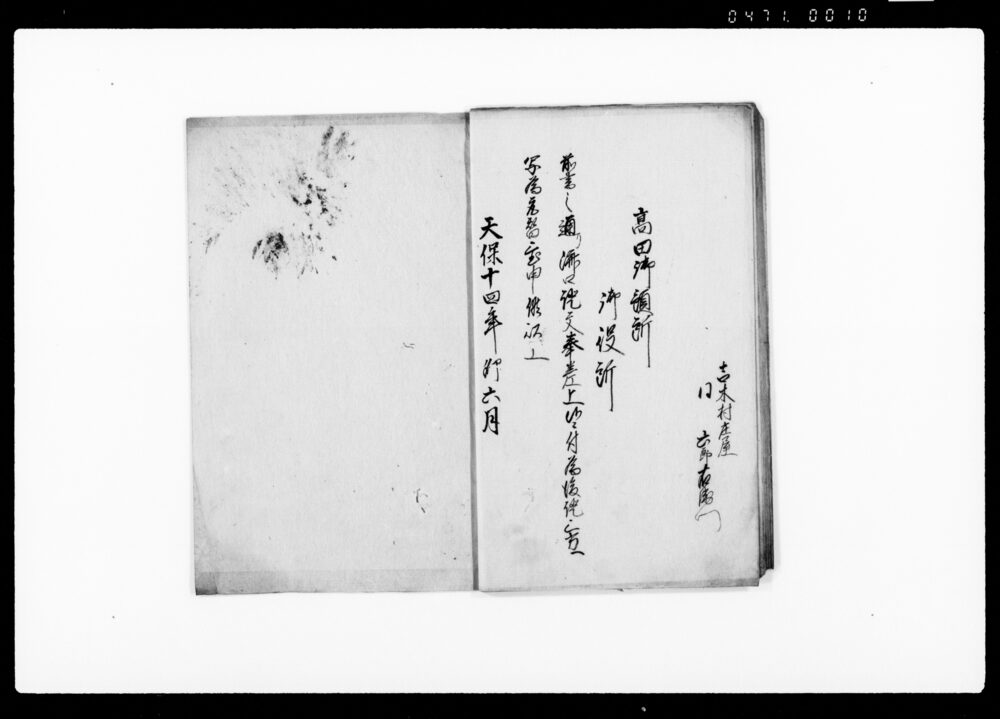 0471. 0010
吉木村庄屋
同 六郎右衛門
高田御預所
御役所
前書之通り済口証文奉差上候ニ付為後証
写為取置申候以上
天保十四年卯六月